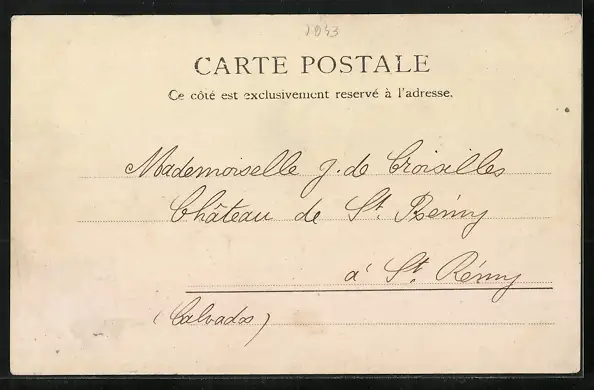 1943
CARTE POSTALE
Ce côté est exclusivement reservé à l'adresse.
Mademoiselle J. de Croisilles
Château de St. Rémy
à St. Rémy
(Calvados)